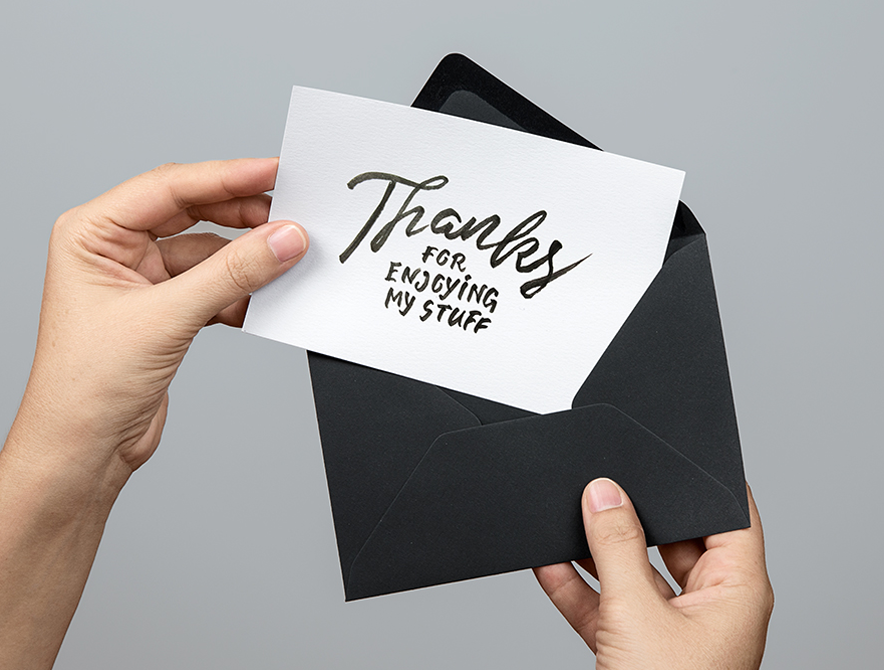 Thanks
FOR
ENJOYiNG
MY STUFF